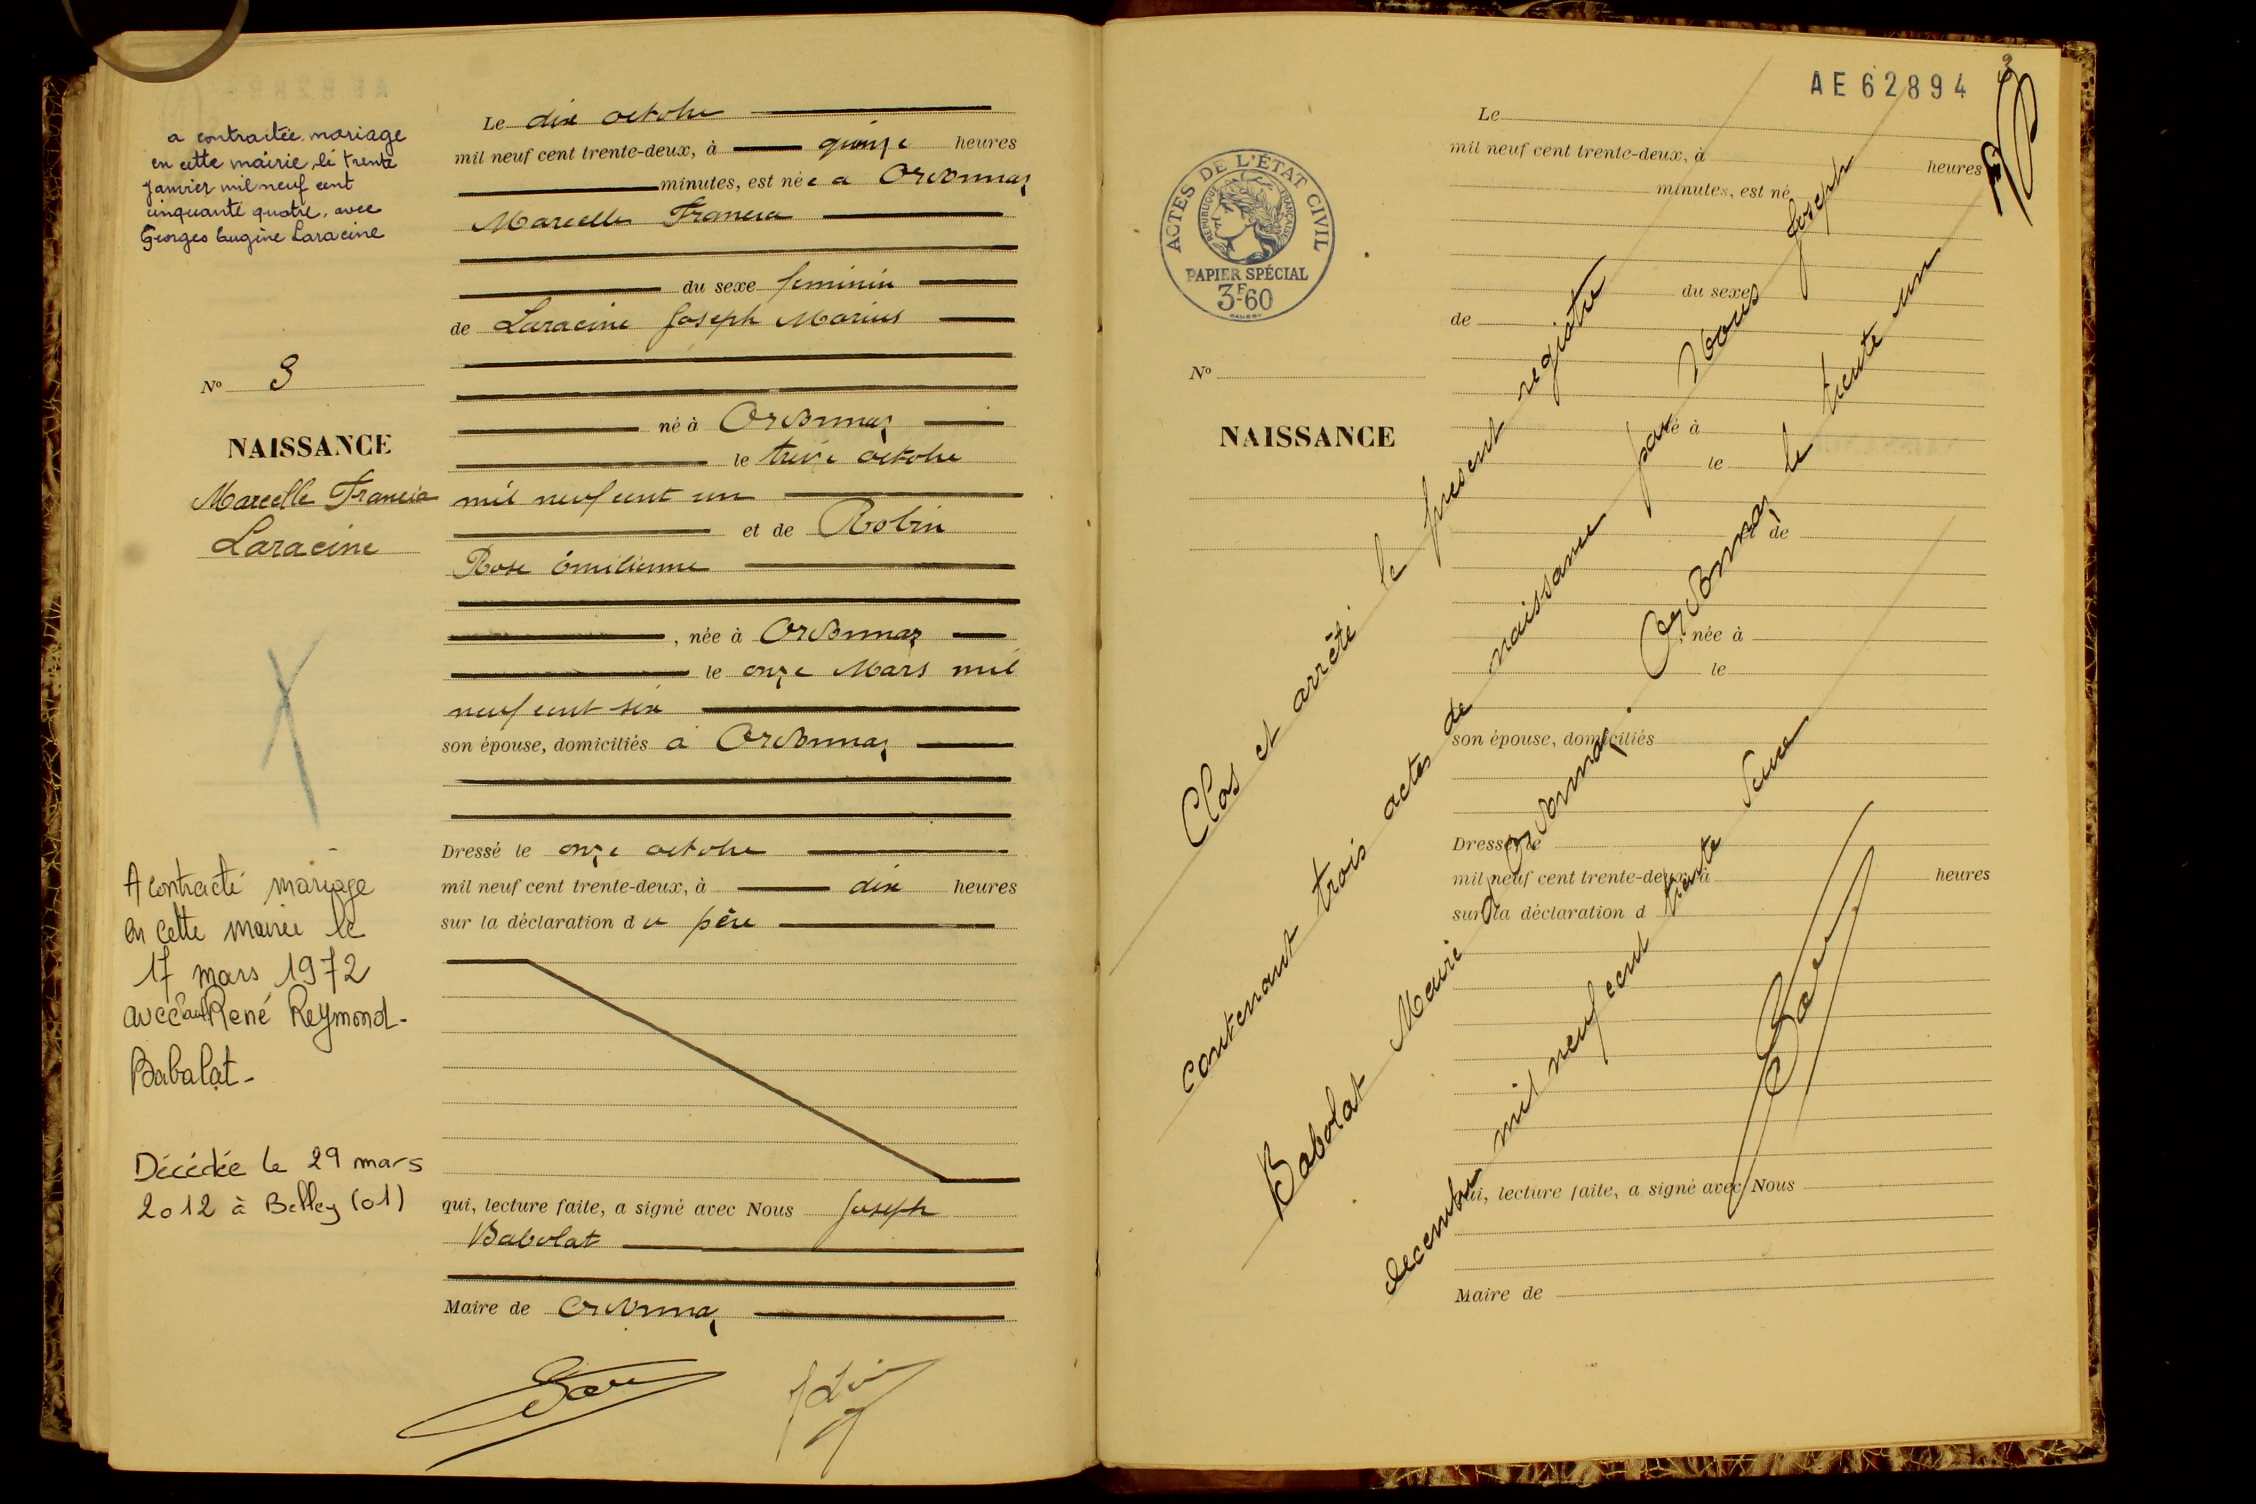 a contractée mariage
en cette mairie, le trente
janvier mil neuf cent
cinquante quatre, avec
Georges Eugène Laracine
N° 3
NAISSANCE
Marcelle Francia
Laracine
A contracté mariage
en cette mairie le
17 mars 1972
avec Paul René Reymond-
Babolat-
Décédée le 29 mars
2012 à Belley (01)
Le dix octobre
mil neuf cent trente-deux, à quinze heures
minutes, est née à Ordonnaz
Marcelle Francia
du sexe féminin
de Laracine Joseph Marius
né à Ordonnaz
le treize octobre
mil neuf cent un
et de Robin
Rose Émilienne
, née à Ordonnaz
le onze Mars mil
neuf cent six
son épouse, domiciliés à Ordonnaz
Dressé le onze octobre
mil neuf cent trente-deux, à dix heures
sur la déclaration du père
qui, lecture faite, a signé avec Nous Joseph
Babolat
Maire de Ordonnaz
AE 62894
3
ACTES DE L'ÉTAT CIVIL
RÉPUBLIQUE FRANÇAISE
PAPIER SPÉCIAL
3F-60
N°
NAISSANCE
Le
mil neuf cent trente-deux, à heures
minutes, est né
du sexe
de
né à
le
et de
, née à
le
son épouse, domiciliés
Dressé le
mil neuf cent trente-deux, à heures
sur la déclaration d
qui, lecture faite, a signé avec Nous
Maire de
Clos et arrêté le present registre
contenant trois actes de naissance par Nous Joseph
Babolat Maire d'Ordonnaz. Ordonnaz le trente un
decembre mil neuf cent trente deux